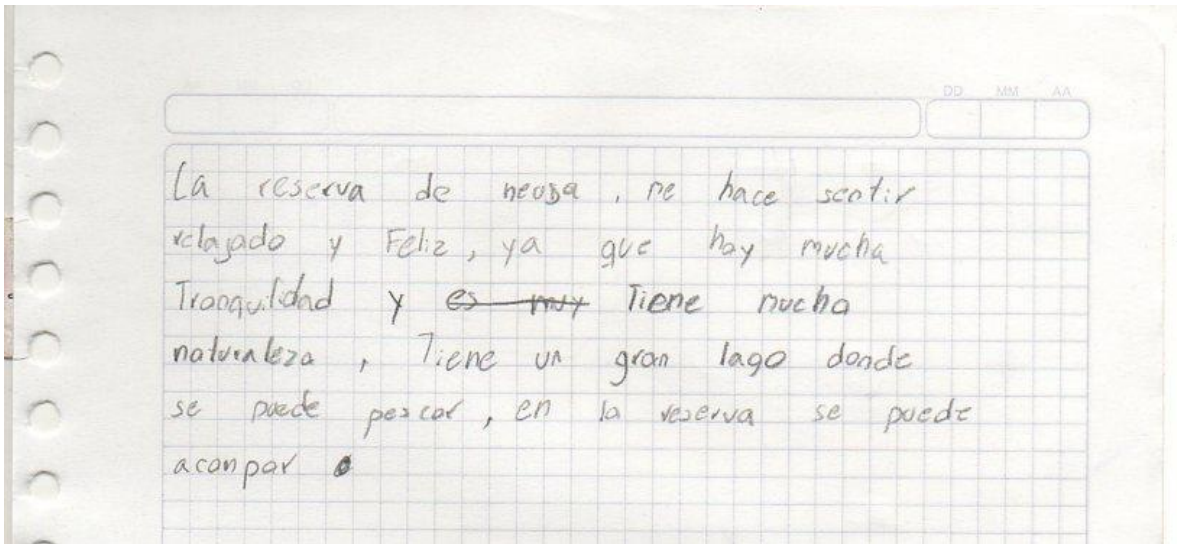 DD MM AA
La reserva de neusa , me hace sentir
relajado y Feliz, ya que hay mucha
Tranquilidad y es muy Tiene mucha
naturaleza , Tiene un gran lago donde
se puede pescar, en la reserva se puede
acanpar